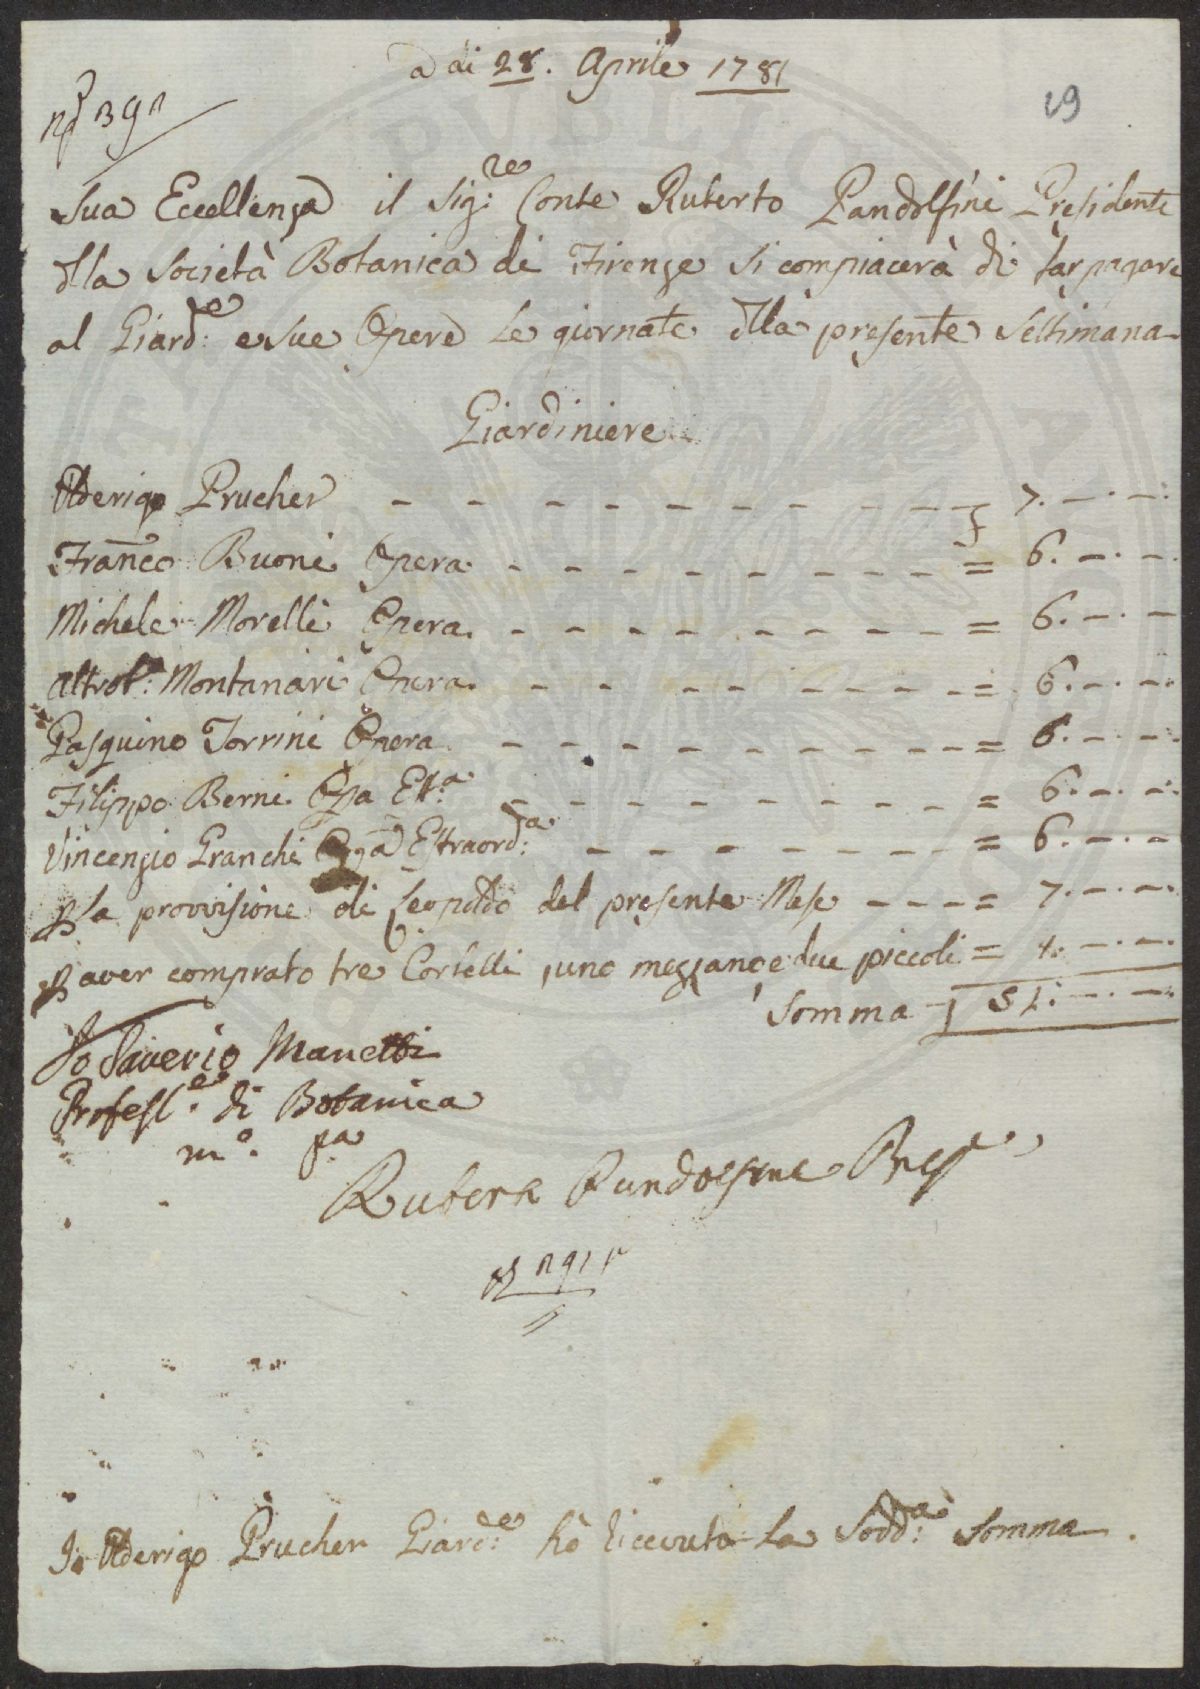 a di 28. Aprile 1781
19
Sua Eccellenza il Sig:re Conte Ruberto Pandolfini Presidente
dlla Società Botanica di Firenze si compiacerà di far pagare
al Giard:e e sue Opere le giornate dlla presente Settimana
Giardiniere
Olderigo Prucher - - - - - - - - - - - - f 7. -. -.
Franco Buoni Opera. - - - - - - - - - - = 6. -. -.
Michele Morelli Opera. - - - - - - - - - = 6. -. -
Montanari Opera. - - - - - - - - = 6. -. -.
Pasquino Torrini Opera - - - - - - - - - = 6. -. -.
Filippo Berni Opa Est:a - - - - - - - - - = 6. -. -.
Vincenzio Granchi Opa Estraord:a - - - - - - - = 6. -. -
P la provvisione di Leopoldo del presente Mese - - - = 7. -. -.
P aver comprato tre Cortelli, uno mezzano e due piccoli = 1. -. -.
Somma f 51. -. -.
Io Saverio Manetti
Profess.e di Botanica
m.o pa
Ruberto Pandolfini Pres.e
Io Olderigo Prucher Giard:e hò riceuto la Sodd:a Somma.